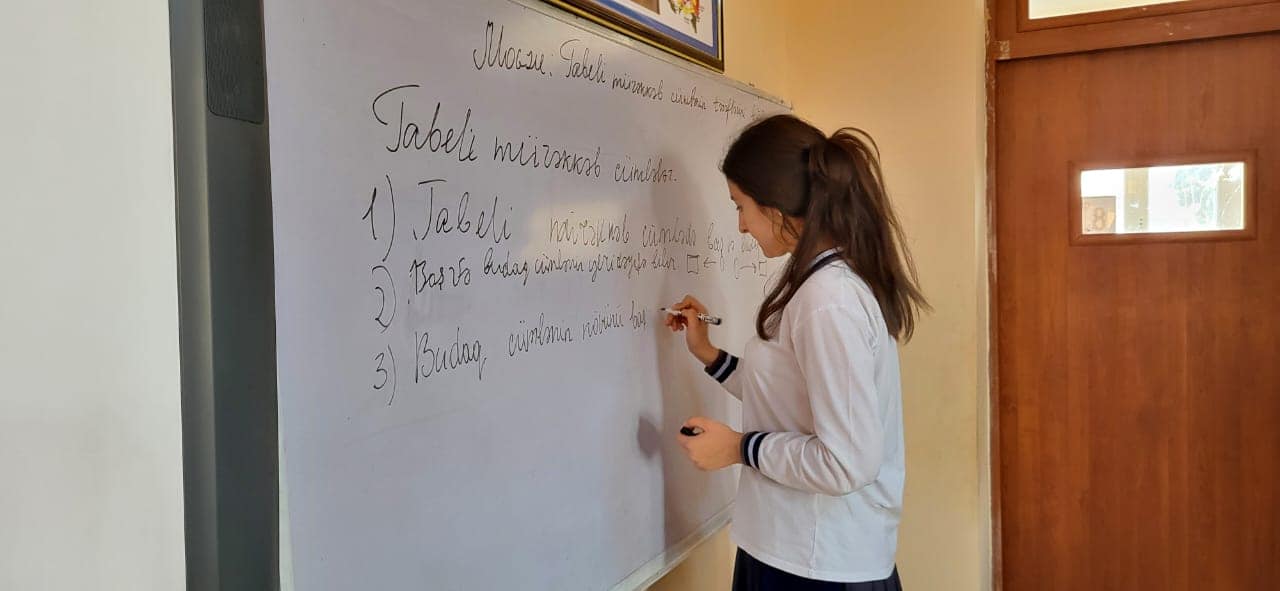 Mövzu: Tabeli mürəkkəb cümlənin tərəfləri
Tabeli mürəkkəb cümlələr.
1) Tabeli mürəkkəb cümlədə baş və
2) Baş və budaq cümlənin yeri dəyişə bilər □ ← →□
3) Budaq cümlənin növünü baş
8